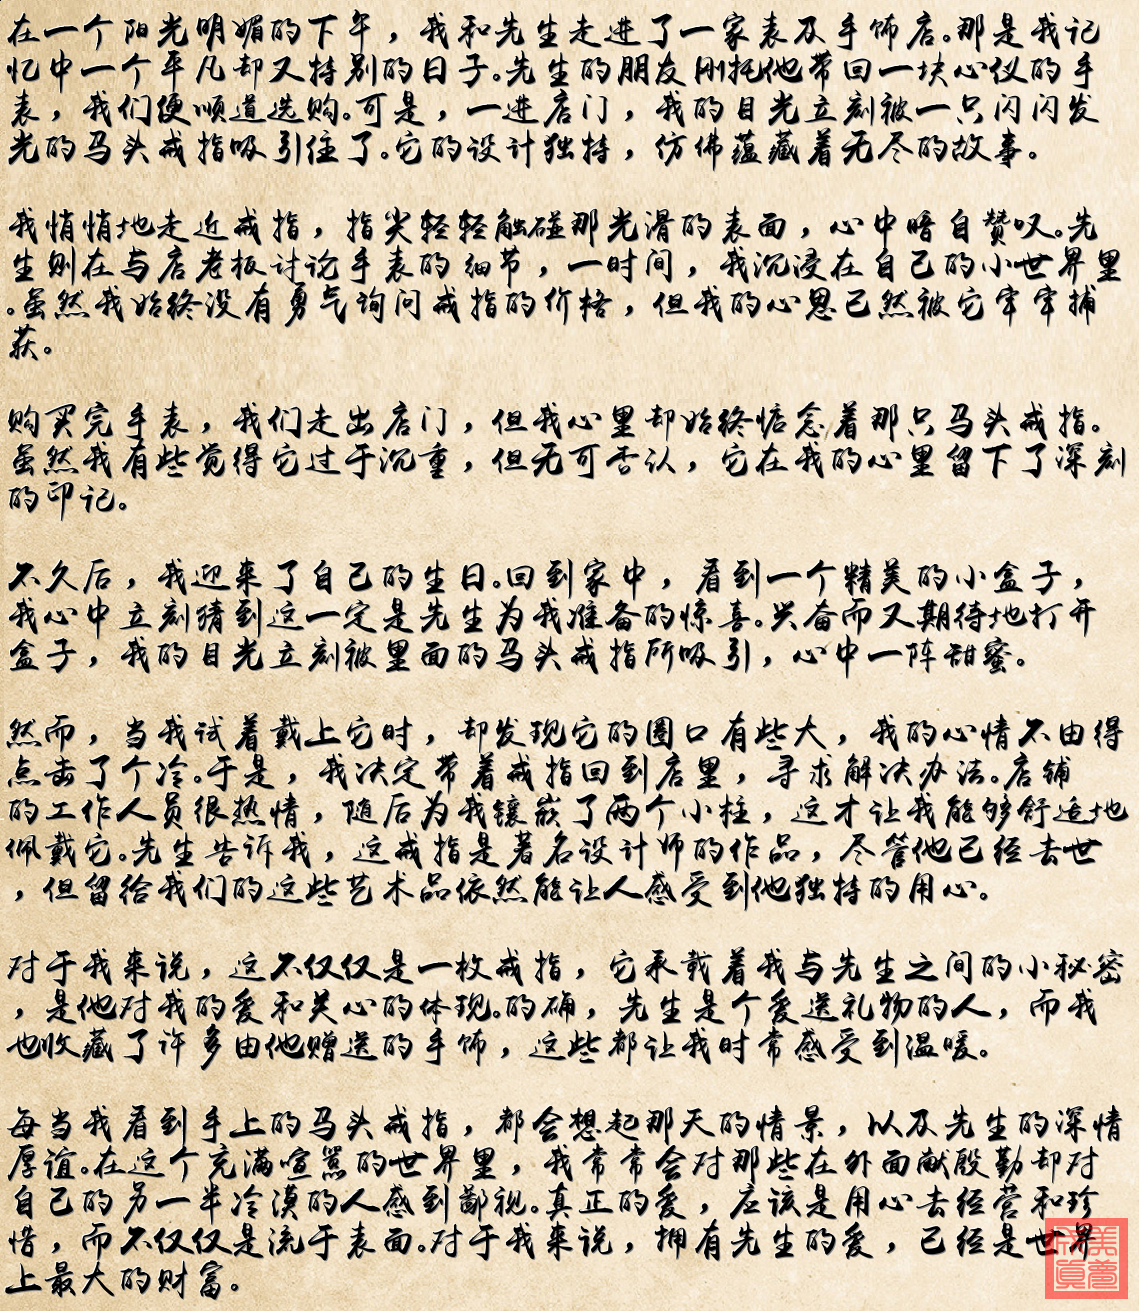 在一个阳光明媚的下午，我和先生走进了一家表及手饰店。那是我记
忆中一个平凡却又特别的日子。先生的朋友刚托他带回一块心仪的手
表，我们便顺道选购。可是，一进店门，我的目光立刻被一只闪闪发
光的马头戒指吸引住了。它的设计独特，仿佛蕴藏着无尽的故事。
我悄悄地走近戒指，指尖轻轻触碰那光滑的表面，心中暗自赞叹。先
生则在与店老板讨论手表的细节，一时间，我沉浸在自己的小世界里
。虽然我始终没有勇气询问戒指的价格，但我的心思已然被它牢牢捕
获。
购买完手表，我们走出店门，但我心里却始终惦念着那只马头戒指。
虽然我有些觉得它过于沉重，但无可否认，它在我的心里留下了深刻
的印记。
不久后，我迎来了自己的生日。回到家中，看到一个精美的小盒子，
我心中立刻猜到这一定是先生为我准备的惊喜。兴奋而又期待地打开
盒子，我的目光立刻被里面的马头戒指所吸引，心中一阵甜蜜。
然而，当我试着戴上它时，却发现它的圈口有些大，我的心情不由得
点击了个冷。于是，我决定带着戒指回到店里，寻求解决办法。店铺
的工作人员很热情，随后为我镶嵌了两个小柱，这才让我能够舒适地
佩戴它。先生告诉我，这戒指是著名设计师的作品，尽管他已经去世
，但留给我们的这些艺术品依然能让人感受到他独特的用心。
对于我来说，这不仅仅是一枚戒指，它承载着我与先生之间的小秘密
，是他对我的爱和关心的体现。的确，先生是个爱送礼物的人，而我
也收藏了许多由他赠送的手饰，这些都让我时常感受到温暖。
每当我看到手上的马头戒指，都会想起那天的情景，以及先生的深情
厚谊。在这个充满喧嚣的世界里，我常常会对那些在外面献殷勤却对
自己的另一半冷漠的人感到鄙视。真正的爱，应该是用心去经营和珍
惜，而不仅仅是流于表面。对于我来说，拥有先生的爱，已经是世界
上最大的财富。